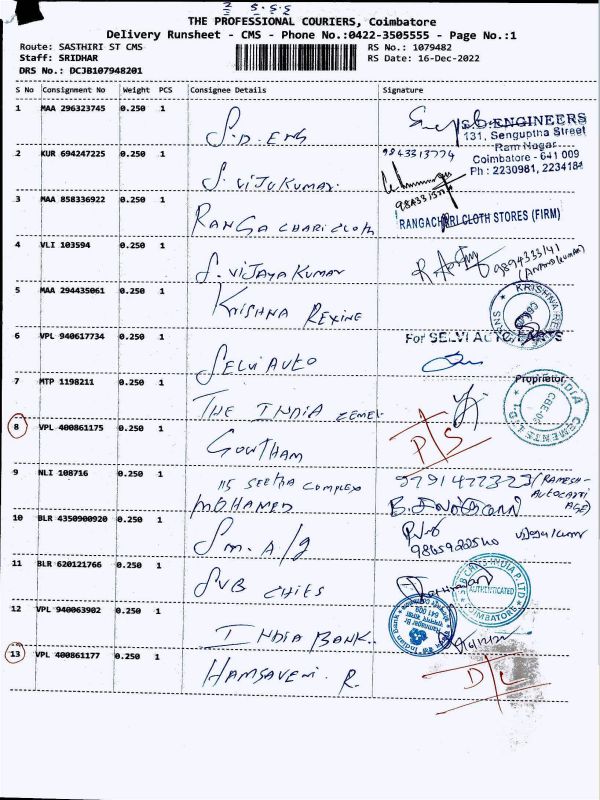 THE PROFESSIONAL COURIERS, Coimbatore
Delivery Runsheet - CMS - Phone No.:0422-3505555 - Page No.:1
Route: SASTHIRI ST CMS
Staff: SRIDHAR
DRS No.: DCJB107948201
RS No.: 1079482
RS Date: 16-Dec-2022
S No Consignment No Weight PCS Consignee Details Signature
1 MAA 296323745 0.250 1 S.D. ENG
S.D. ENGINEERS
131, Senguptha Street
Ram Nagar
Coimbatore - 641 009
Ph : 2230981, 2234184
2 KUR 694247225 0.250 1 S. VIJUKUMAR. 9843313774
3 MAA 858336922 0.250 1 RANGA CHARI CLOTH
RANGACHARI CLOTH STORES (FIRM)
4 VLI 103594 0.250 1 S. VIJAYAKUMAR 9894333141
5 MAA 294435061 0.250 1 KRISHNA REXINE
6 VPL 940617734 0.250 1 SELVI AUTO
For SELVI AUTO PARTS
Proprietor
7 MTP 1198211 0.250 1 THE INDIA CEMEN
INDIA CEMENTS LTD
8 VPL 400861175 0.250 1 GOWTHAM P/S
9 NLI 108716 0.250 1 115 SEETHA COMPLEX
MOHAMED
(RAMESH-
10 BLR 4350900920 0.250 1 S.M. A/g
11 BLR 620121766 0.250 1 SVB CHITS
AUTHENTICATED
COIMBATORE
12 VPL 940063902 0.250 1 INDIA BANK.
Indian Bank
13 VPL 400861177 0.250 1 HAMSAVENI R. D/L